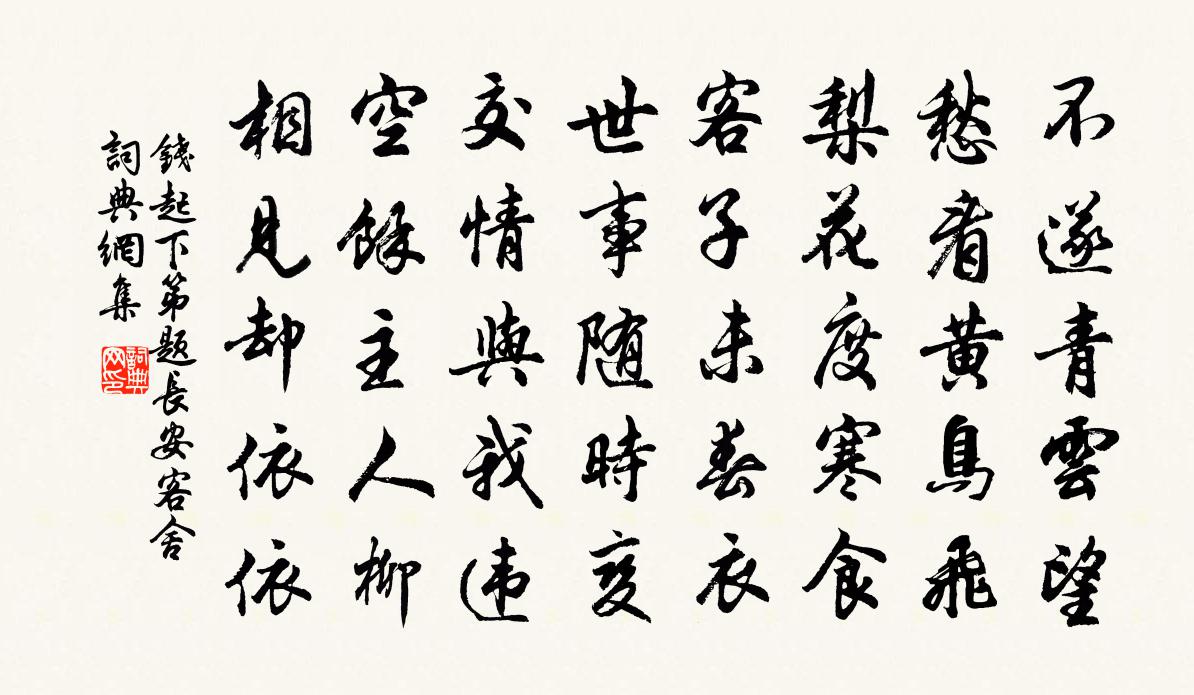 不遂青雲望
愁看黄鳥飛
梨花度寒食
客子未春衣
世事随時变
交情與我違
空餘主人柳
相見却依依
錢起下第题長安客舍
詞典網集
詞典网印